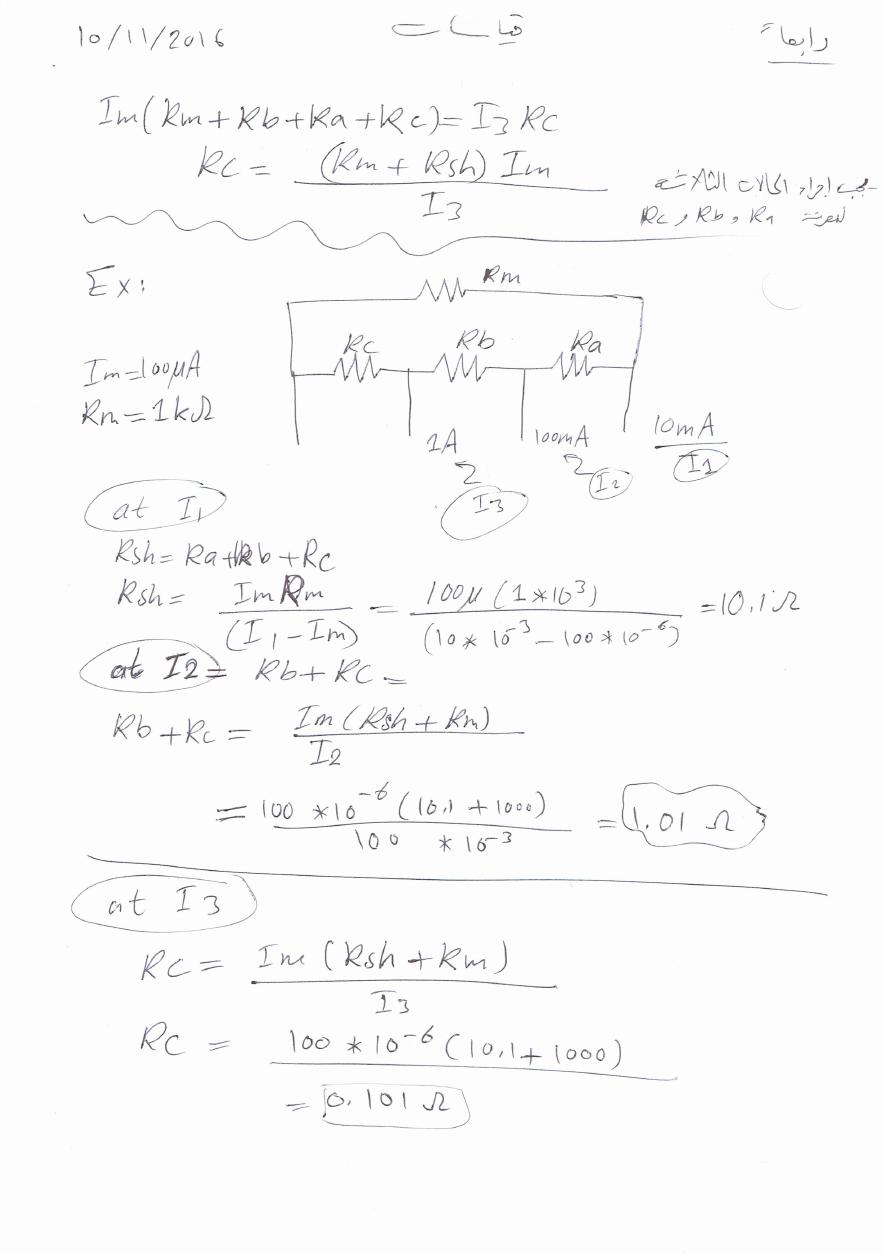 10/11/2016 قياسات رابعاً
Im(Rm+Rb+Ra+Rc)=I3 Rc
Rc = (Rm + Rsh) Im
I3
يجب إجراء الحالات الثلاثة
لمعرفة Ra و Rb و Rc
Ex:
Rm
Rc Rb Ra
Im=100μA
Rm=1kΩ
1A 100mA 10mA
I3 I2 I1
at I1
Rsh=Ra+Rb+Rc
Rsh= Im Rm = 100μ(1*10³) =10.1Ω
(I1-Im) (10*10⁻³-100*10⁻⁶)
at I2= Rb+Rc=
Rb+Rc= Im(Rsh+Rm)
I2
= 100*10⁻⁶(10.1+1000) = 1.01Ω
100 *10⁻³
at I3
Rc= Im(Rsh+Rm)
I3
Rc = 100*10⁻⁶(10.1+1000)
= 0.101Ω